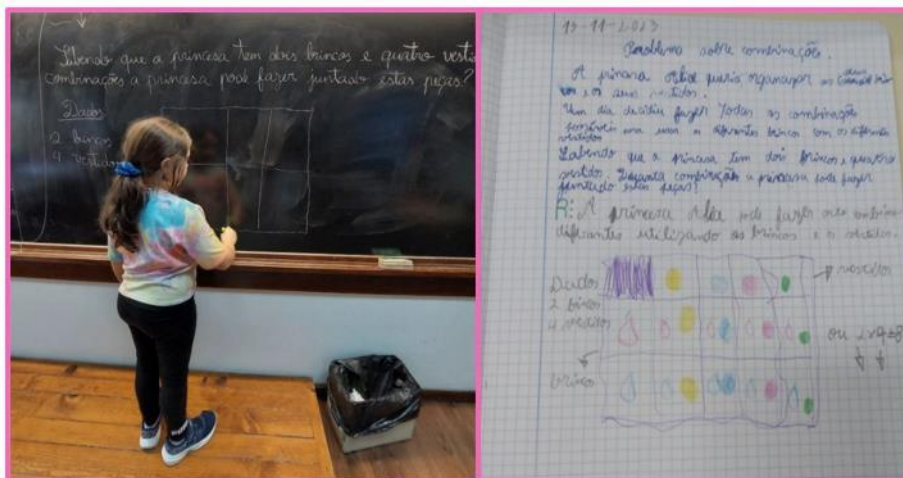 Sabendo que a princesa tem dois brincos e quatro vesti
combinações a princesa pode fazer juntado estas peças?
Dados
2 brincos
4 vestidos
13-11-2023
Problema sobre combinação.
A princesa queria organizar os
e os seus vestidos.
Um dia decidiu fazer todas as combinações
possíveis diferentes brincos com os diferentes
vestidos
Sabendo que a princesa tem dois brincos e quatro
vestidos. combinação a princesa pode fazer
juntado estas peças?
R: A princesa pode fazer oito
diferentes utilizando os brincos e os vestidos.
Dados
2 brincos
4 vestidos
vestidos
ou 2x4=8
brincos